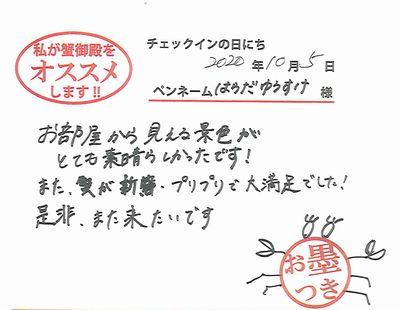 私が蟹御殿を
オススメ
します!!
チェックインの日にち
2020年10月5日
ペンネーム はらだゆうすけ 様
お部屋から見える景色が
とても素晴らしかったです!
また、蟹が新鮮・プリプリで大満足でした!
是非、また来たいです
お墨
つき